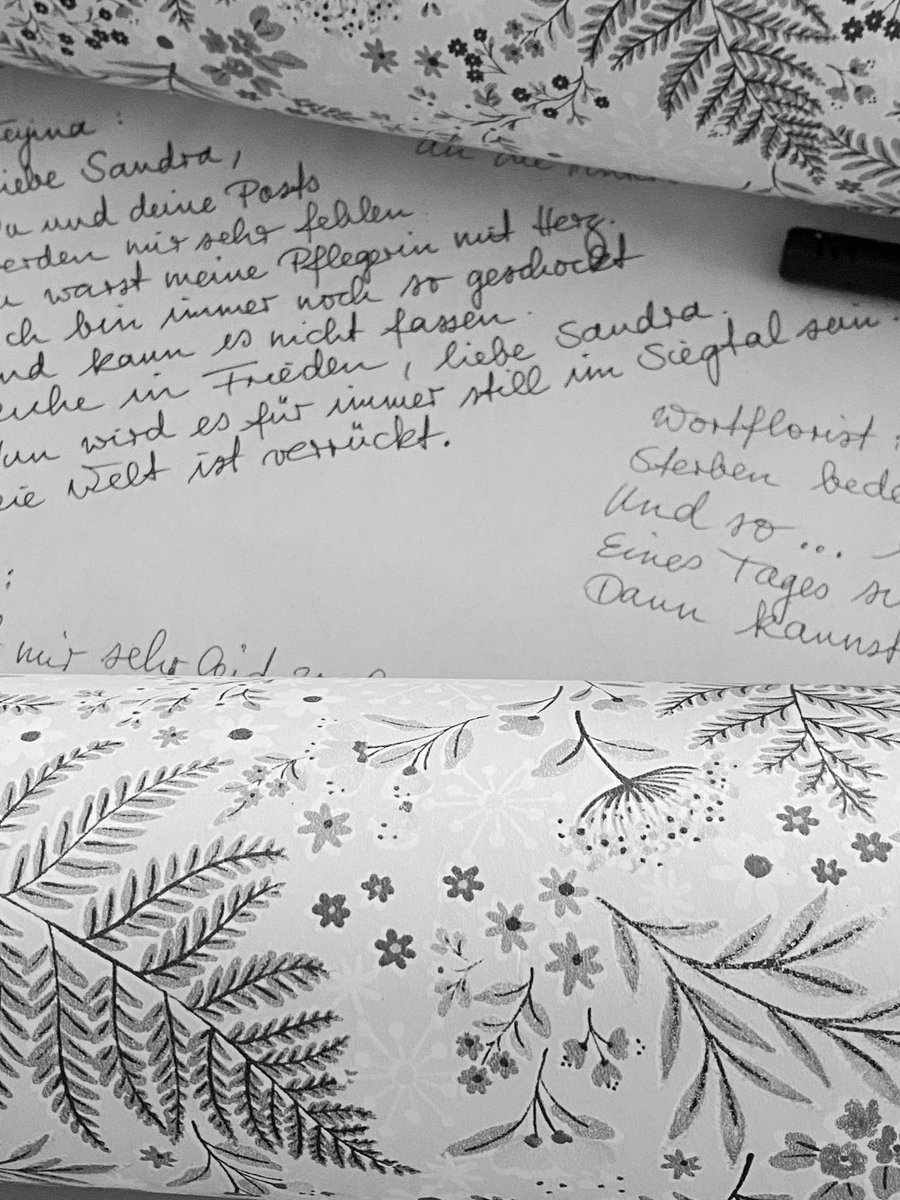 Teyina :
liebe Sandra,
Du und deine Posts
werden mir sehr fehlen.
Du warst meine Pflegerin mit Herz.
Ich bin immer noch so geschockt
und kann es nicht fassen.
Ruhe in Frieden, liebe Sandra.
Nun wird es für immer still im Siegtal sein.
Die Welt ist verrückt.
an die
Wortflorist :
Sterben
Und so ...
Eines Tages
Dann kannst
:
mir sehr